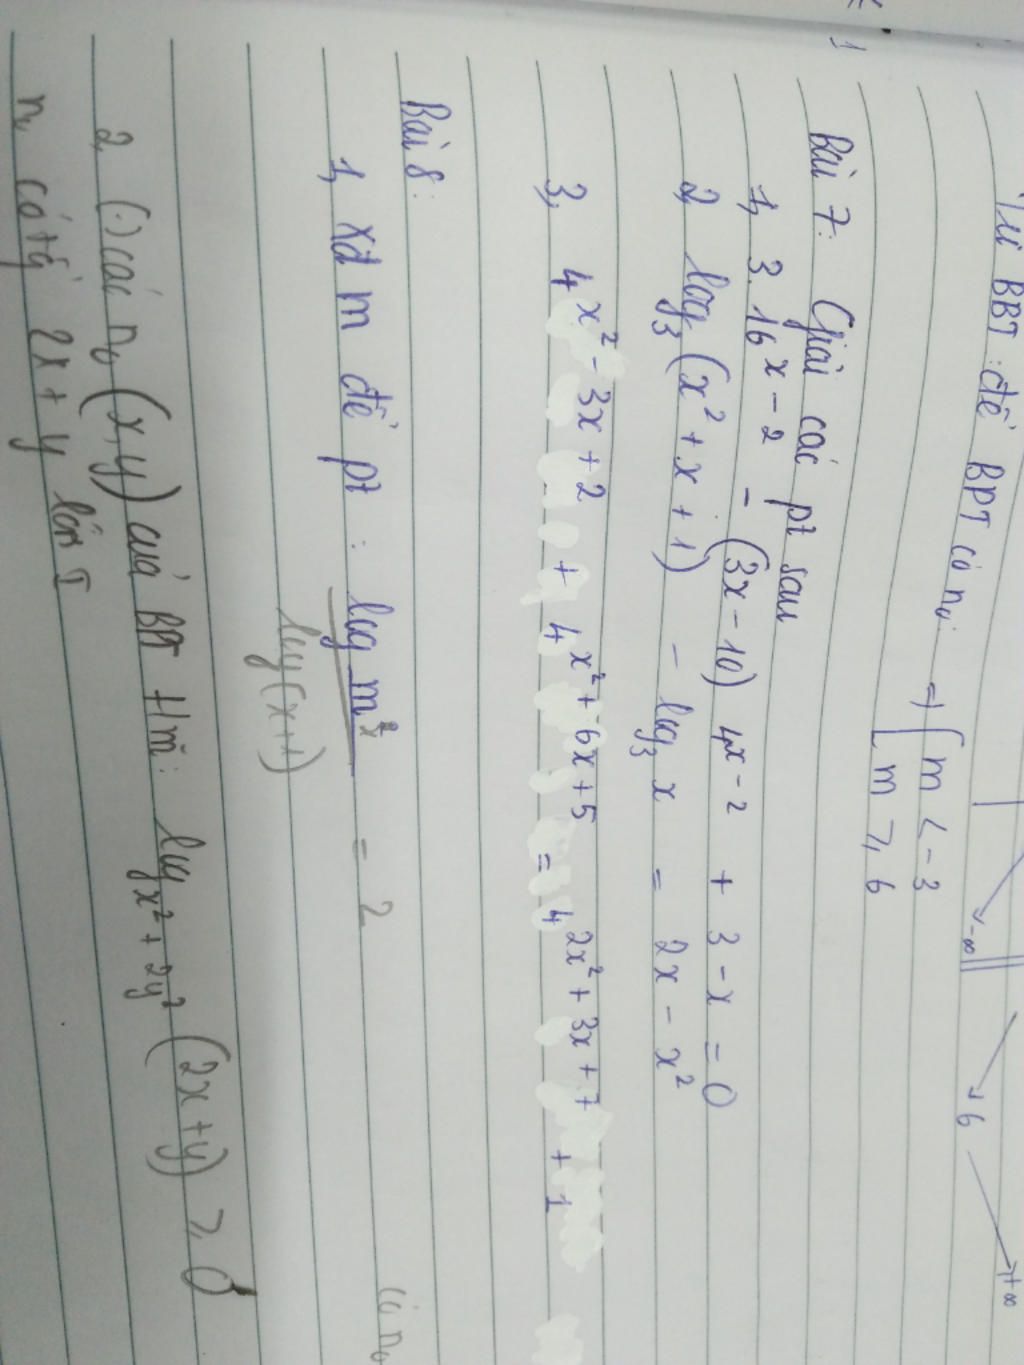 Từ BBT: để BPT có n₀: ⇒ [ m < -3
m ⩾ 6
-∞ 6 +∞
Bài 7: Giải các pt sau
1, 3.16^{x-2} - (3x-10) 4^{x-2} + 3 - x = 0
2, log₃ (x² + x + 1) - log₃ x = 2x - x²
3, 4^{x² - 3x + 2} + 4^{x² + 6x + 5} = 4^{2x² + 3x + 7} + 1
Bài 8:
1, Xđ m để pt : log mx / log(x+1) = 2 có n₀
2, (.) các n₀ (x,y) của BPT log_{x² + 2y²} (2x + y) ⩾ 0
n₀ có tổng 2x + y lớn I